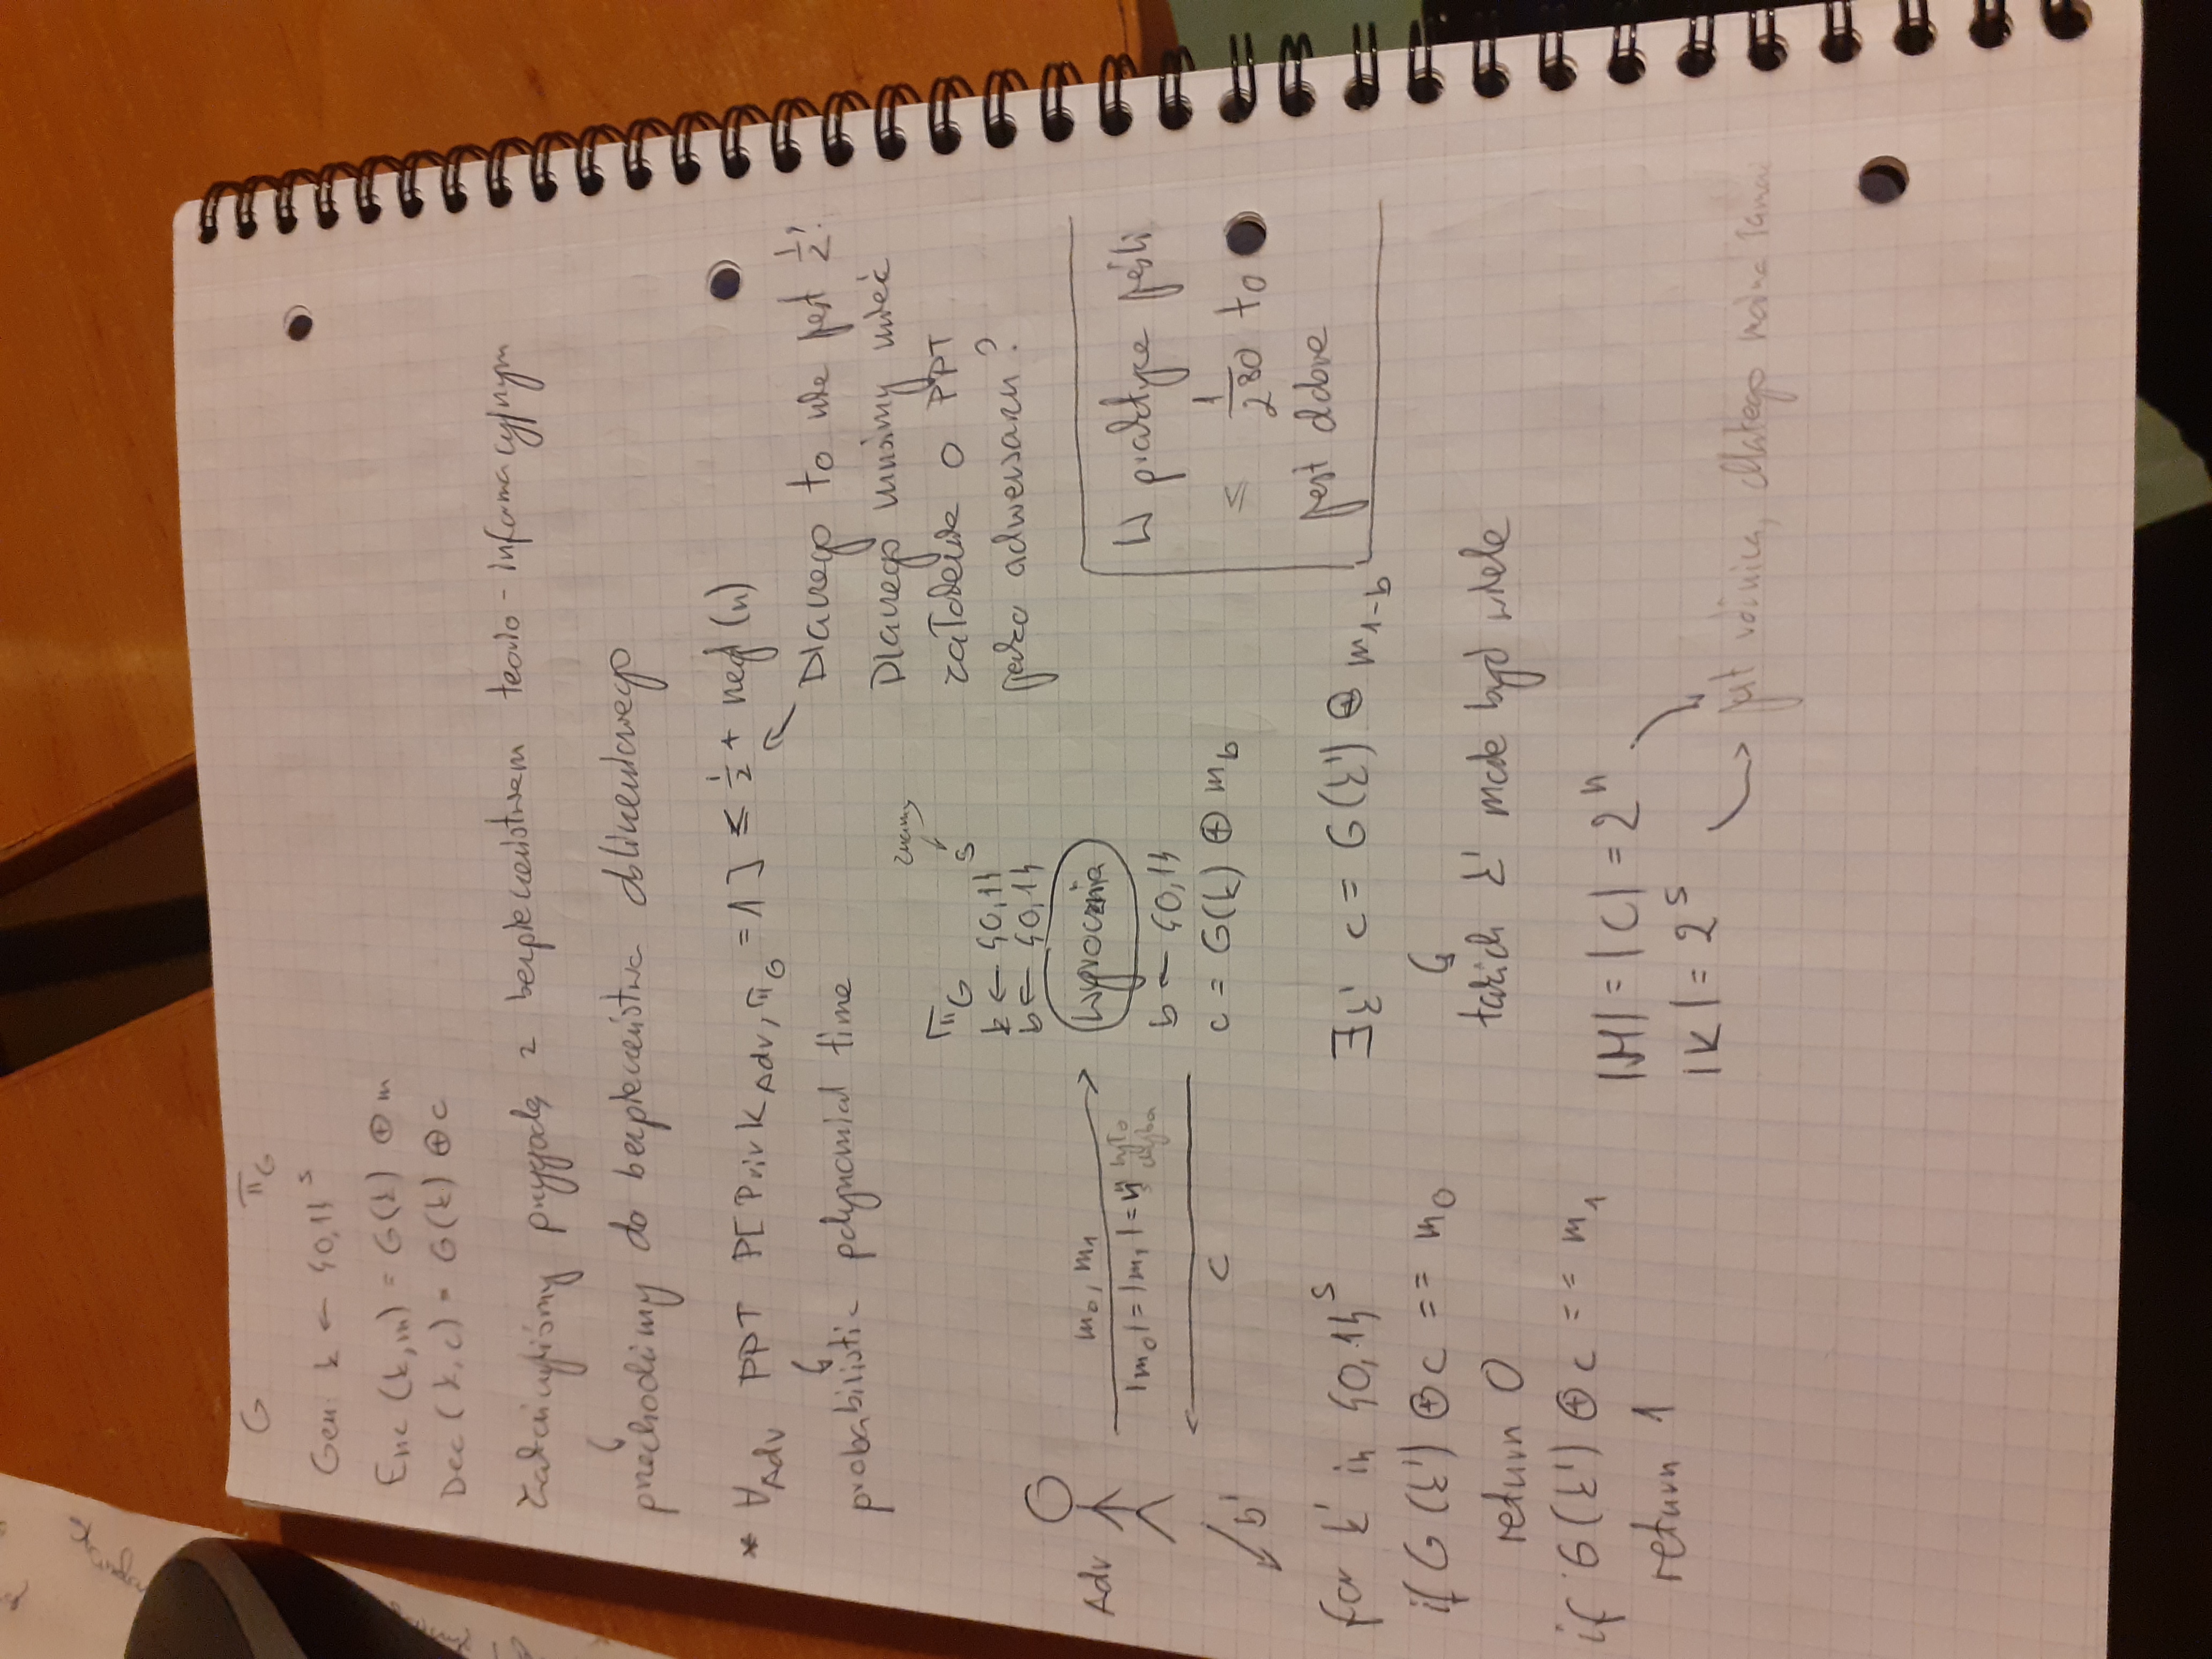 G π_G
Gen: k ← {0,1}^s
Enc (k,m) = G(k) ⊕ m
Dec (k,c) = G(k) ⊕ c
Zakończyliśmy przygodę z bezpieczeństwem teorio-informacyjnym
przechodzimy do bezpieczeństwa obliczeniowego
* ∀_Adv PPT P[PrivK_Adv,π_G = 1] ≤ 1/2 + negl(n)
probabilistic polynomial time
Dlaczego to nie jest 1/2?
Dlaczego musimy mieć
założenie o PPT
jako adwersarzu?
znamy
π_G
k ← {0,1}^s
b ← {0,1}
Adv
m_0, m_1
Wyrocznia
|m_0| = |m_1| = n
było
chyba
s
b ← {0,1}
c
c = G(k) ⊕ m_b
b'
W praktyce jeśli
≤ 1/2^80 to
jest dobre
for k' in {0,1}^s
if G(k') ⊕ c == m_0
return 0
if G(k') ⊕ c == m_1
return 1
∃k' c = G(k') ⊕ m_1-b
takich k' może być wiele
|M| = |C| = 2^n
|K| = 2^s
jest różnica, dlatego można